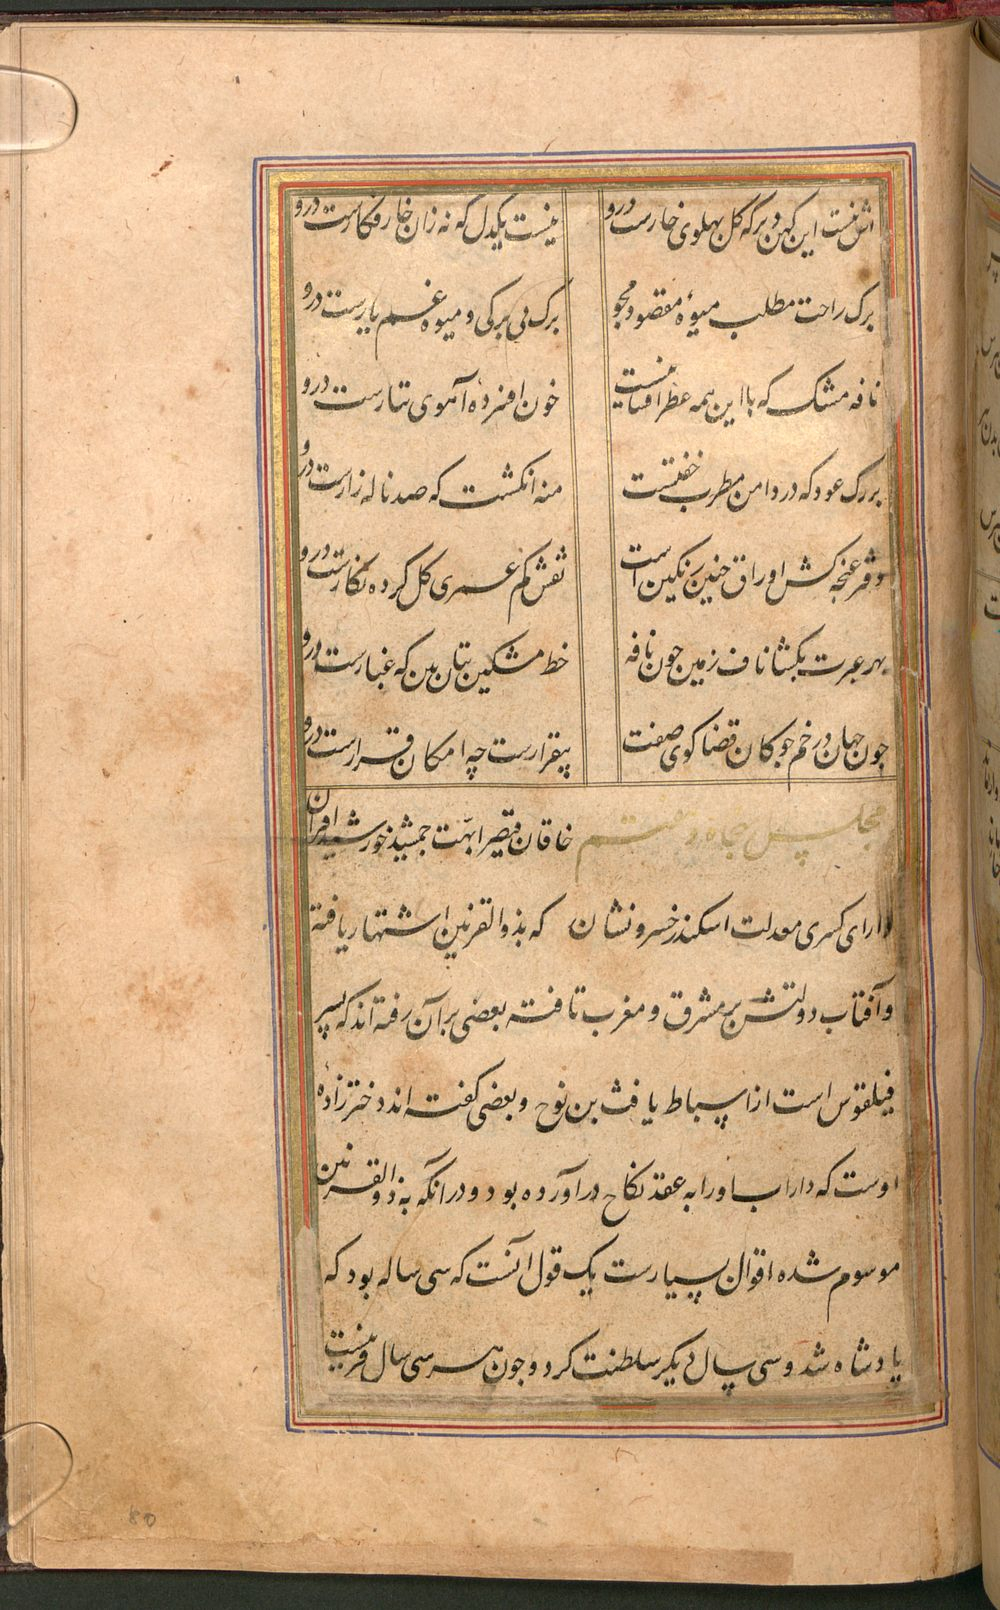 آتش نیست این کهن دیر که گل پهلوی خارست درو نیست یکدل که نه زان خار فکارست درو
برک راحت مطلب میوهٔ مقصود مجو برک بی برکی و میوه غم یارست درو
نافه مشک که با این همه عطر افشانیست خون افسردهٔ آهوی تتارست درو
بر رک عود که در دامن مطرب خفتست منه انکشت که صد ناله زارست درو
دفتر غنچه کش اوراق چنین رنکین است نقش کم عمری کل کرده نکارست درو
بهر عبرت بکشا ناف زمین چون نافه خط مشکین بتان بین که غبارست درو
چون جهان در خم چوکان قضا کوی صفت بیقرارست چه امکان قرارست درو
مجلس پنجاه و هفتم خاقان قیصر ابهت جمشید خورشید افسران
دارای کسری معدلت اسکندر خسرو نشان که بذوالقرنین اشتهار یافته
و آفتاب دولتش بر مشرق و مغرب تافته بعضی بر آن رفته اند که پسر
فیلقوس است از اسباط یافث بن نوح و بعضی کفته اند دخترزادهٔ
اوست که داراب او را به عقد نکاح در آورده بود و در انکه به ذوالقرنین
موسوم شده اقوال بسیارست یک قول آنست که سی ساله بود که
پادشاه شد و سی سال دیکر سلطنت کرد و چون هر سی سال قرنیست
80